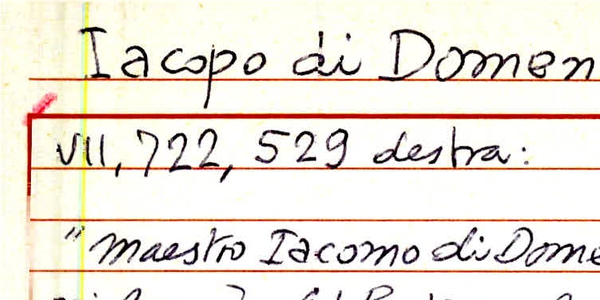 Iacopo di Domen
VII, 722, 529 destra:
"maestro Iacomo di Dome